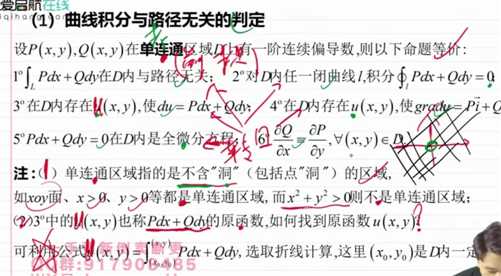 爱启航在线
qihang.com
(1) 曲线积分与路径无关的判定
设P(x, y), Q(x, y)在单连通区域D上有一阶连续偏导数, 则以下命题等价:
1° ∫_L Pdx + Qdy在D内与路径无关; 2° 对D内任一闭曲线l, 积分∮_l Pdx + Qdy = 0
3° 在D内存在u(x, y), 使du = Pdx + Qdy; 4° 在D内存在u(x, y), 使gradu = Pi + Q
5° Pdx + Qdy = 0在D内是全微分方程; 6° ∂Q/∂x = ∂P/∂y, ∀(x, y) ∈ D
注: (1) 单连通区域指的是不含"洞"(包括点"洞")的区域,
如xoy面、x > 0、y > 0等都是单连通区域, 而x² + y² > 0则不是单连通区域;
(2) 3°中的u(x, y)也称Pdx + Qdy的原函数, 如何找到原函数u(x, y)?
可利用公式u(x, y) = ∫ Pdx + Qdy, 选取折线计算, 这里(x₀, y₀)是D内一定
群:917906485